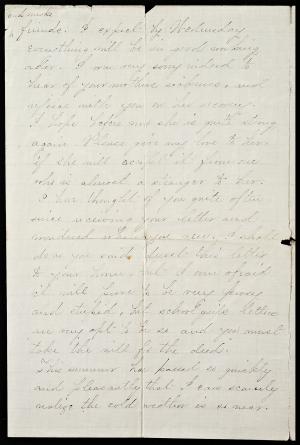 and make
friends. I expect by Wednesday
everything will be in good working
order. I was very sorry indeed to
hear of your mothers sickness, and
rejoice with you in her recovery.
I hope before now she is quite strong
again. Please give my love to her
if she will accept it from one
who is almost a stranger to her.
I have thought of you quite often
since receiving your letter and
wondered where you were. I shall
do as you said, direct this letter
to your home, but I am afraid
it will prove to be very prosy
and stupid, but school girls letters
are very apt to be so and you must
take the will for the deed.
This summer has passed so quickly
and pleasantly that I can scarcely
realize the cold weather is so near.